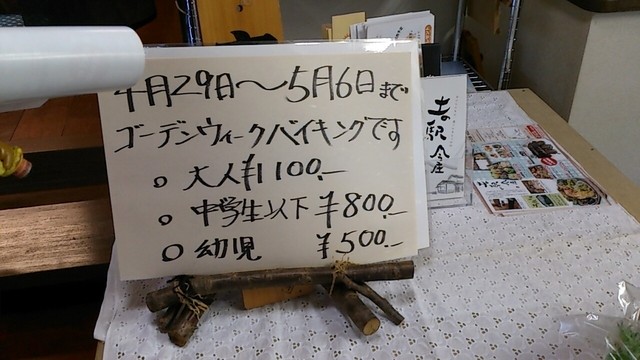 4月29日〜5月6日まで
ゴーデンウィークバイキングです
○ 大人¥1100.-
○ 中学生以下 ¥800.-
○ 幼児 ¥500.-
土の駅
今庄